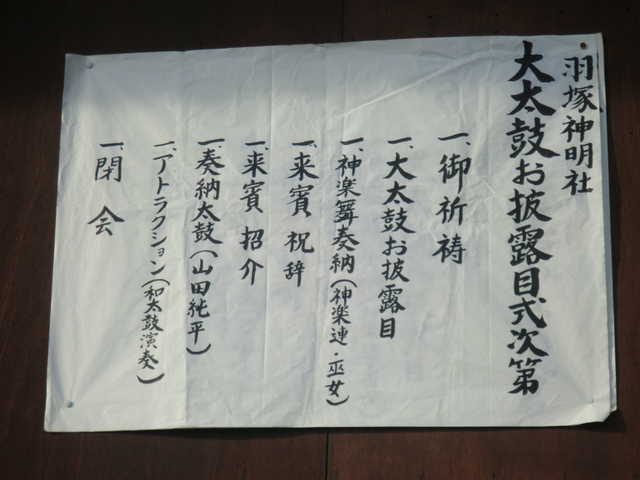 羽塚神明社
大太鼓お披露目式次第
一、御祈祷
一、大太鼓お披露目
一、神楽舞奏納(神楽連・巫女)
一、来賓祝辞
一、来賓招介
一、奏納太鼓(山田純平)
一、アトラクション(和太鼓演奏)
一、閉会